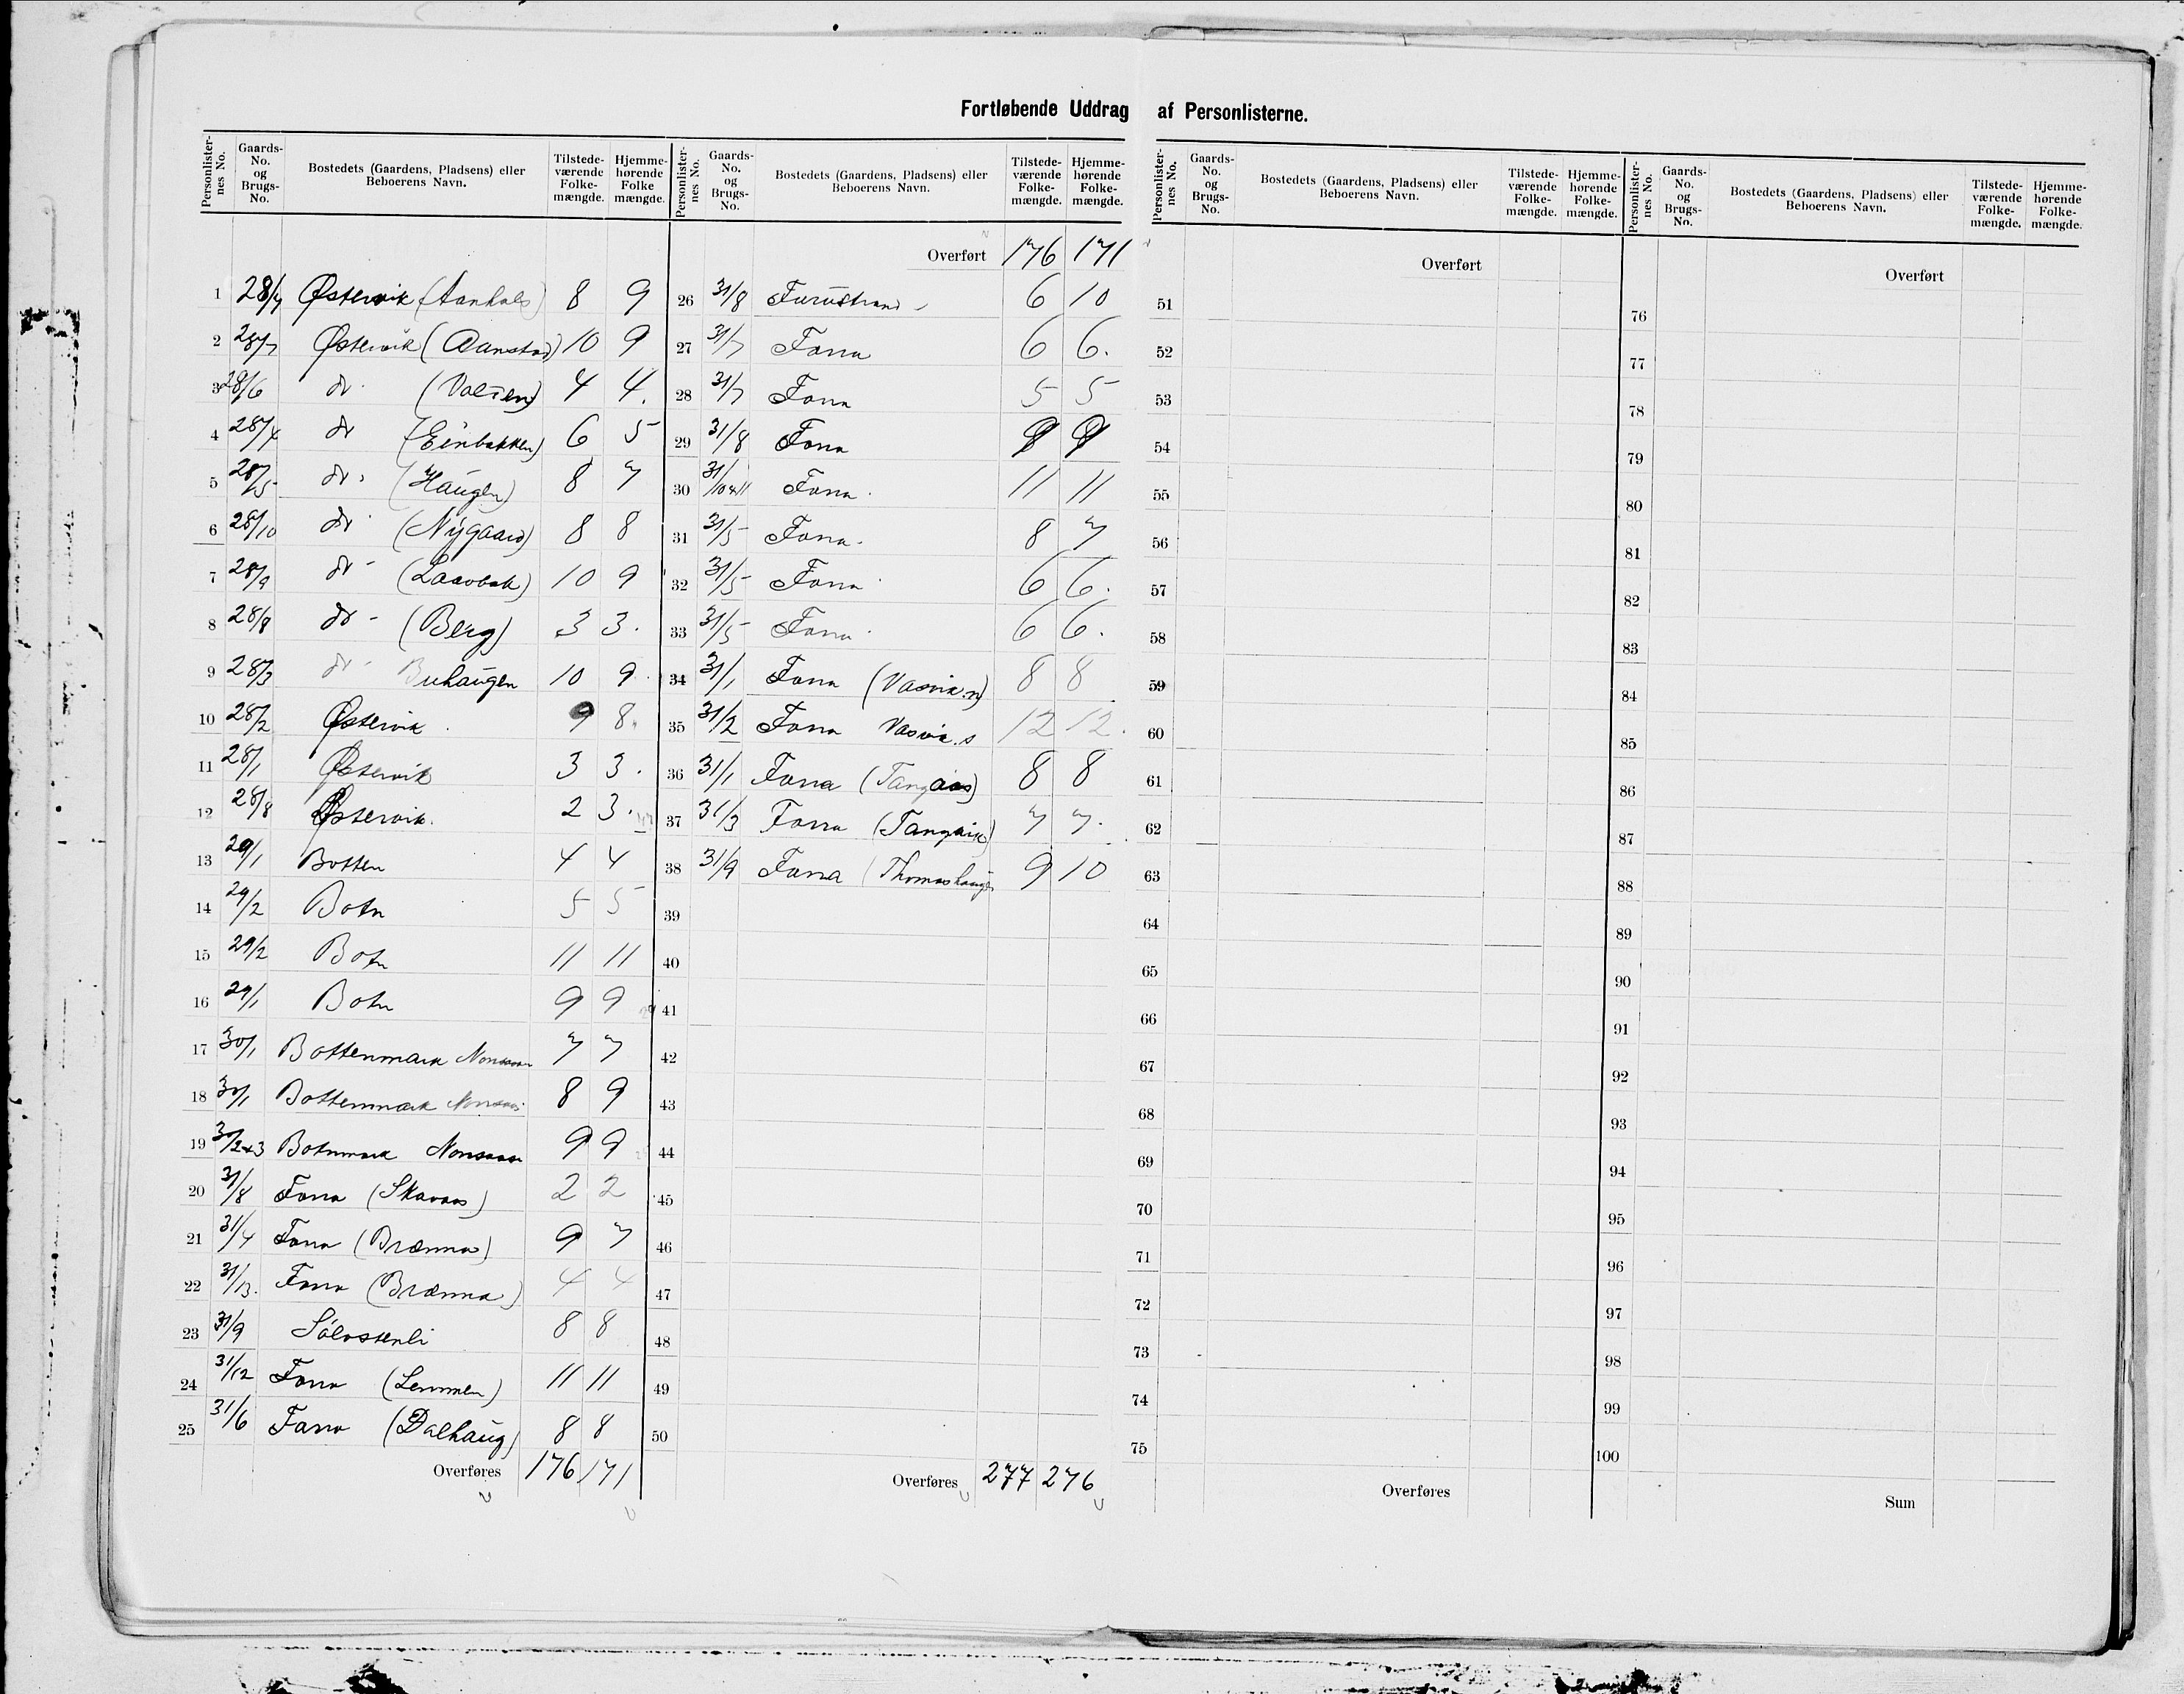 Fortløbende Uddrag af Personlisterne.
Personlister-nes No. | Gaards-No. og Brugs-No. | Bostedets (Gaardens, Pladsens) eller Beboerens Navn. | Tilstede-værende Folke-mængde. | Hjemme-hørende Folke mængde.
1 28/7 Østervik 8 9
2 28/7 Østervik (Aanstad) 10 9
3 28/6 do (Volden) 4 4.
4 28/4 do (Einbakken) 6 5
5 28/5 do (Haugen) 8 7
6 28/10 do (Nygaard) 8 8
7 28/9 do 10 9
8 28/8 do (Berg) 3 3.
9 28/3 do Buhaugen 10 9.
10 28/2 Østervik 9 8.
11 28/1 Østervik 3 3.
12 28/8 Østervik. 2 3.
13 29/1 Botten 4 4
14 29/2 Botn 5 5
15 29/2 Botn 11 11
16 29/1 Botn 9 9
17 30/1 Bottenmark 7 7
18 30/1 Bottenmark 8 9
19 30/2+3 Botnmark 9 9
20 31/8 Fona (Skavaas) 2 2
21 31/4 Fona (Brænna) 9 7
22 31/13. Fona (Brænna) 4 4
23 31/9 Sølvstenli 8 8
24 31/12 Fona (Lemmen) 11 11
25 31/6 Fona (Dalhaug) 8 8
Overføres 176 171
Personlister-nes No. | Gaards-No. og Brugs-No. | Bostedets (Gaardens, Pladsens) eller Beboerens Navn. | Tilstede-værende Folke-mængde. | Hjemme-hørende Folke-mængde.
Overført 176 171
26 31/8 Furustrand 6 10
27 31/7 Fona 6 6.
28 31/7 Fona 5 5
29 31/8 Fona 9 9
30 31/10+11 Fona. 11 11
31 31/5 Fona. 8 7
32 31/5 Fona 6 6.
33 31/5 Fona 6 6.
34 31/1 Fona (Vasvik.n) 8 8
35 31/2 Fona Vasvik.s 12 12.
36 31/1 Fona (Tangaas) 8 8
37 31/3 Fona (Tangvik) 7 7.
38 31/9 Fona (Thomashaugen 9 10
39
40
41
42
43
44
45
46
47
48
49
50
Overføres 277 276
Personlister-nes No. | Gaards-No. og Brugs-No. | Bostedets (Gaardens, Pladsens) eller Beboerens Navn. | Tilstede-værende Folke-mængde. | Hjemme-hørende Folke-mængde.
Overført
51
52
53
54
55
56
57
58
59
60
61
62
63
64
65
66
67
68
69
70
71
72
73
74
75
Overføres
Personlister-nes No. | Gaards-No. og Brugs-No. | Bostedets (Gaardens, Pladsens) eller Beboerens Navn. | Tilstede-værende Folke-mængde. | Hjemme-hørende Folke-mængde.
Overført
76
77
78
79
80
81
82
83
84
85
86
87
88
89
90
91
92
93
94
95
96
97
98
99
100
Sum